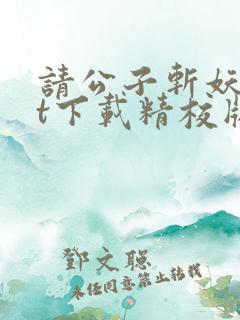 請公子斬妖
t下載精校版
鄧文聰
未任同意禁止转载